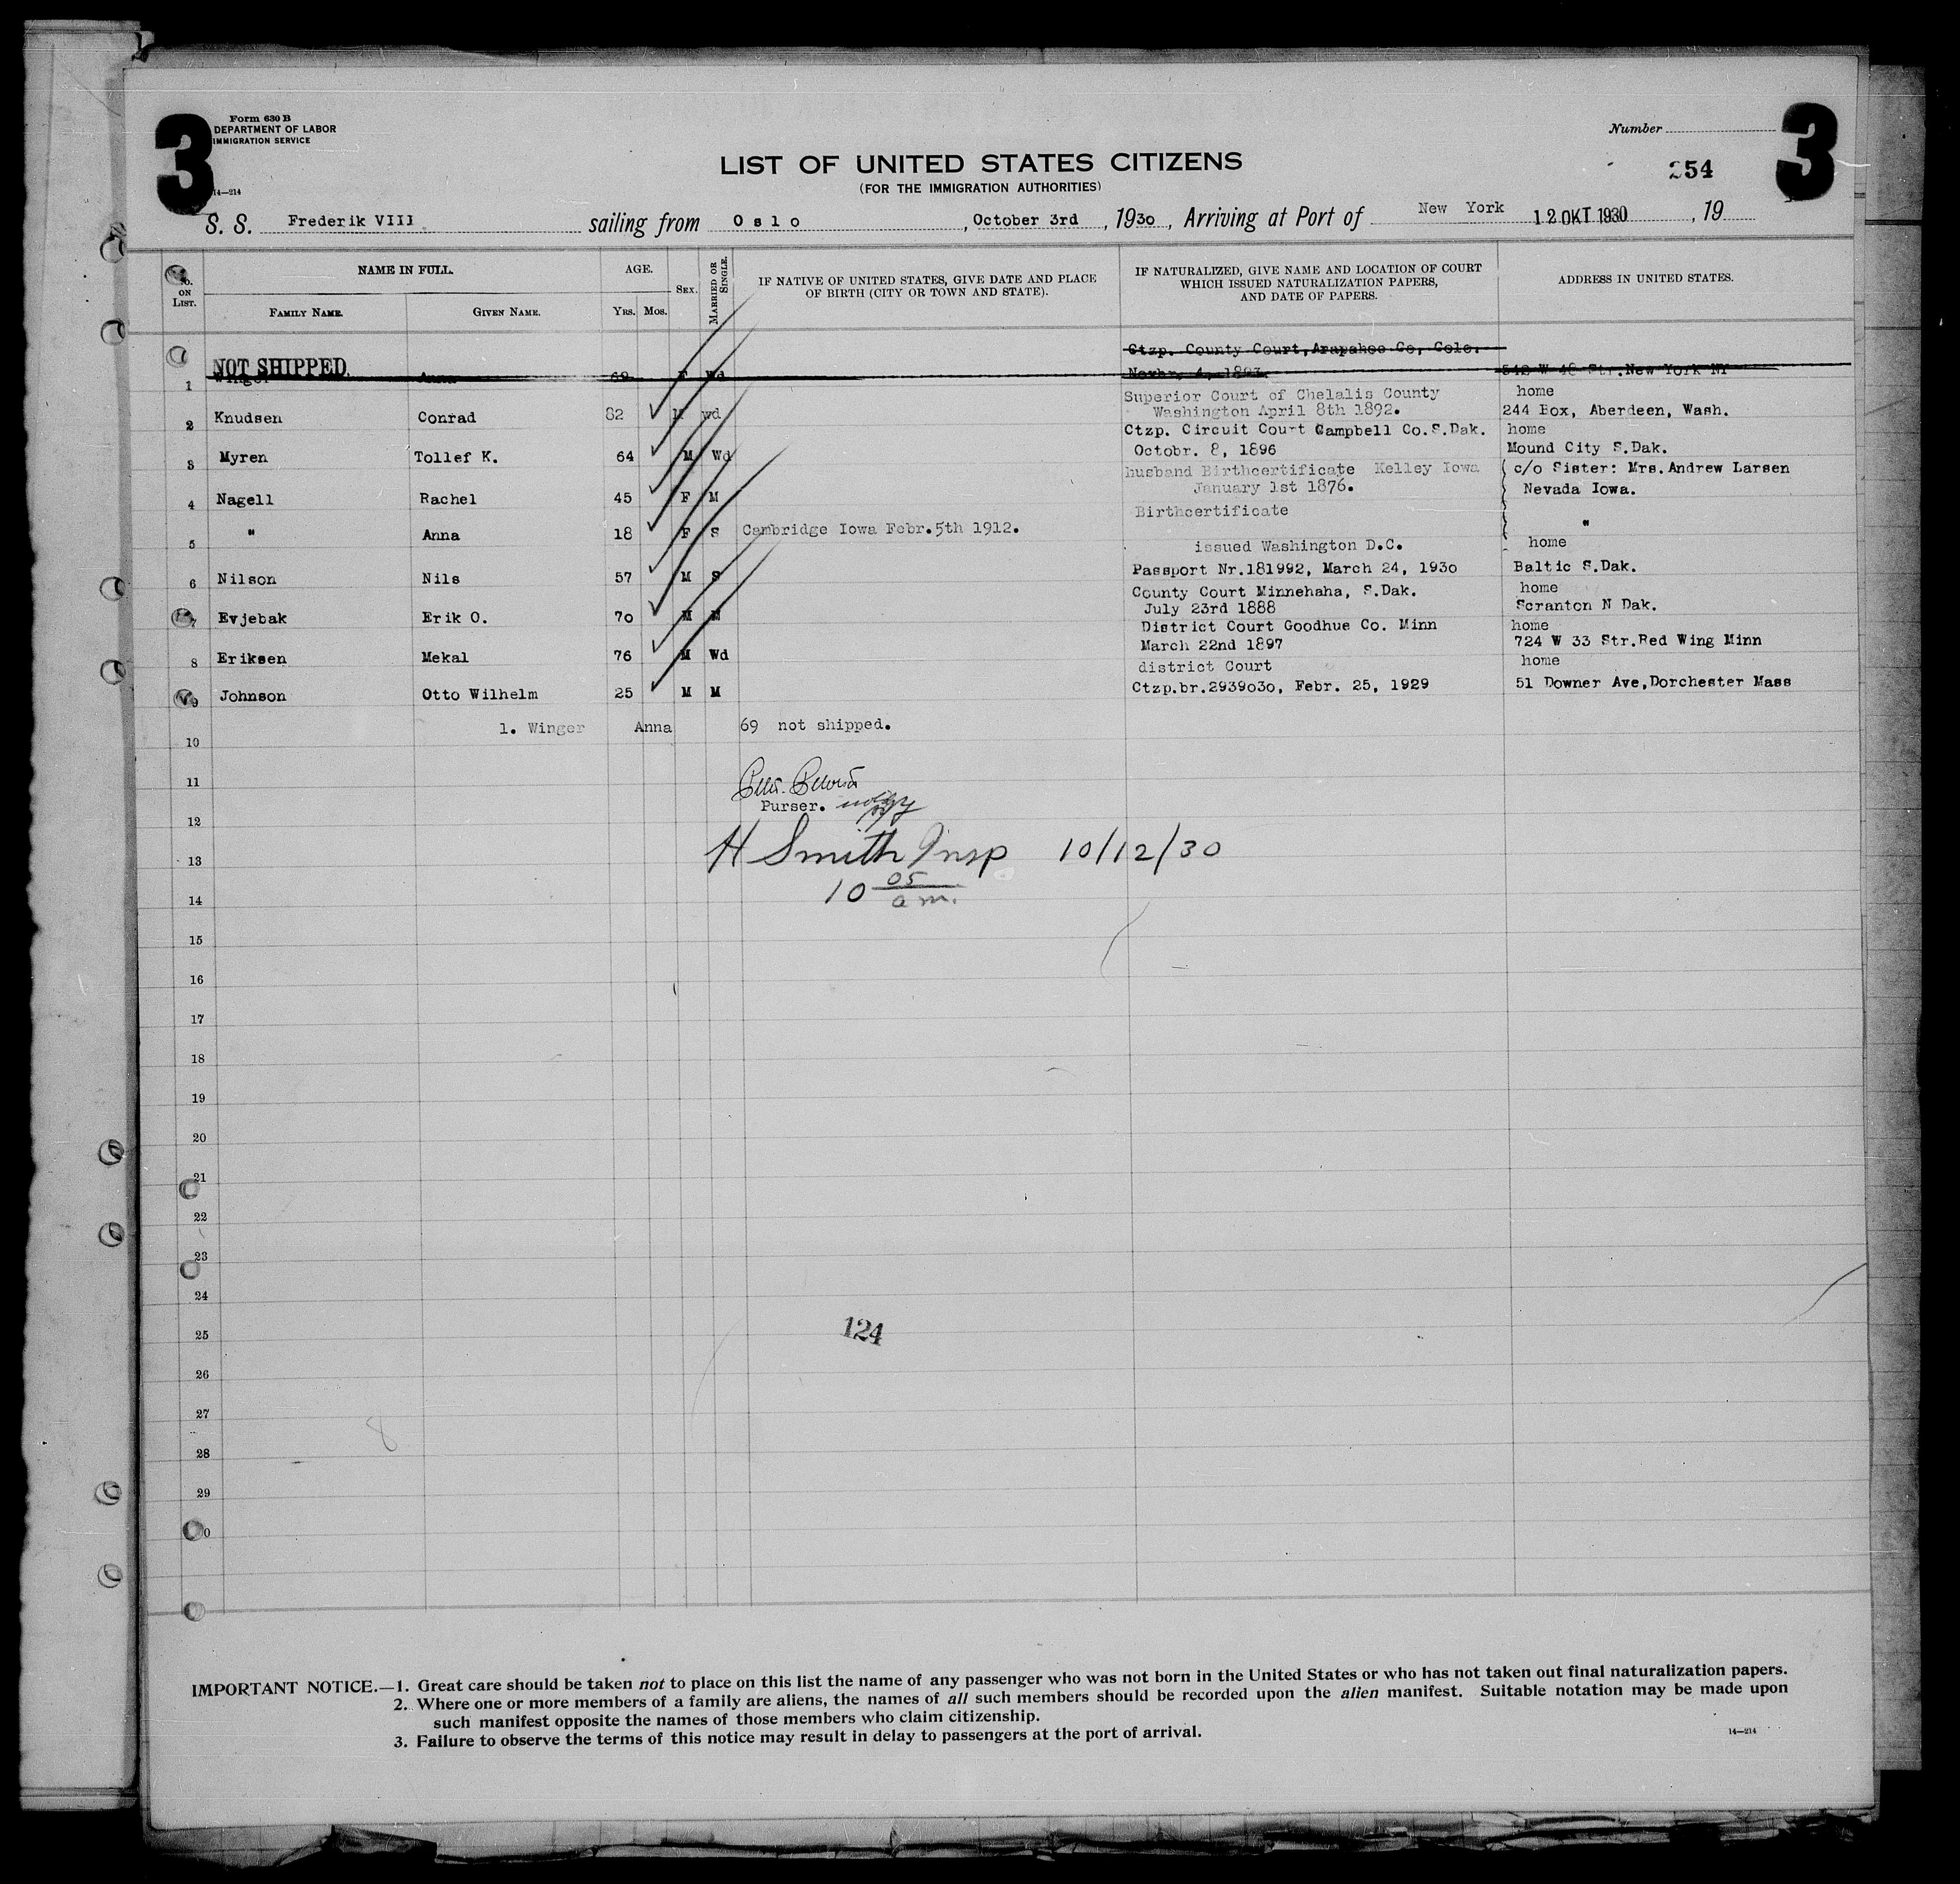 3
Form 630 B
DEPARTMENT OF LABOR
IMMIGRATION SERVICE
14—214
Number
3
LIST OF UNITED STATES CITIZENS
(FOR THE IMMIGRATION AUTHORITIES)
254
S. S. Frederik VIII sailing from Oslo, October 3rd, 1930, Arriving at Port of New York 12 OKT 1930, 19
No. ON LIST.
NAME IN FULL.
FAMILY NAME.
GIVEN NAME.
AGE.
YRS.
MOS.
SEX.
MARRIED OR SINGLE.
IF NATIVE OF UNITED STATES, GIVE DATE AND PLACE
OF BIRTH (CITY OR TOWN AND STATE).
IF NATURALIZED, GIVE NAME AND LOCATION OF COURT
WHICH ISSUED NATURALIZATION PAPERS,
AND DATE OF PAPERS.
ADDRESS IN UNITED STATES.
Ctzp. County Court, Arapahoe Co, Colo.
NOT SHIPPED.
1 Winger Anna 69 F Wd Novbr. 4, 1893 542 W 48 Str. New York NY
Superior Court of Chelalis County home
2 Knudsen Conrad 82 M wd Washington April 8th 1892. 244 Box, Aberdeen, Wash.
Ctzp. Circuit Court Campbell Co.S.Dak. home
3 Myren Tollef K. 64 M Wd Octobr. 8, 1896 Mound City S.Dak.
husband Birthcertificate Kelley Iowa c/o Sister: Mrs.Andrew Larsen
4 Nagell Rachel 45 F M January 1st 1876. Nevada Iowa.
Birthcertificate
5 " Anna 18 F S Cambridge Iowa Febr.5th 1912. "
issued Washington D.C. home
6 Nilson Nils 57 M S Passport Nr.181992, March 24, 1930 Baltic S.Dak.
County Court Minnehaha, S.Dak. home
7 Evjebak Erik O. 70 M M July 23rd 1888 Scranton N Dak.
District Court Goodhue Co. Minn home
8 Eriksen Mekal 76 M Wd March 22nd 1897 724 W 33 Str.Red Wing Minn
district Court home
9 Johnson Otto Wilhelm 25 M M Ctzp.br.2939030, Febr. 25, 1929 51 Downer Ave,Dorchester Mass
1. Winger Anna 69 not shipped.
10
11
Purser.
12
H Smith Insp 10/12/30
13
10 05 am.
14
15
16
17
18
19
20
21
22
23
24
124
25
26
27
8
28
29
0
IMPORTANT NOTICE.—1. Great care should be taken not to place on this list the name of any passenger who was not born in the United States or who has not taken out final naturalization papers.
2. Where one or more members of a family are aliens, the names of all such members should be recorded upon the alien manifest. Suitable notation may be made upon
such manifest opposite the names of those members who claim citizenship.
3. Failure to observe the terms of this notice may result in delay to passengers at the port of arrival.
14—214